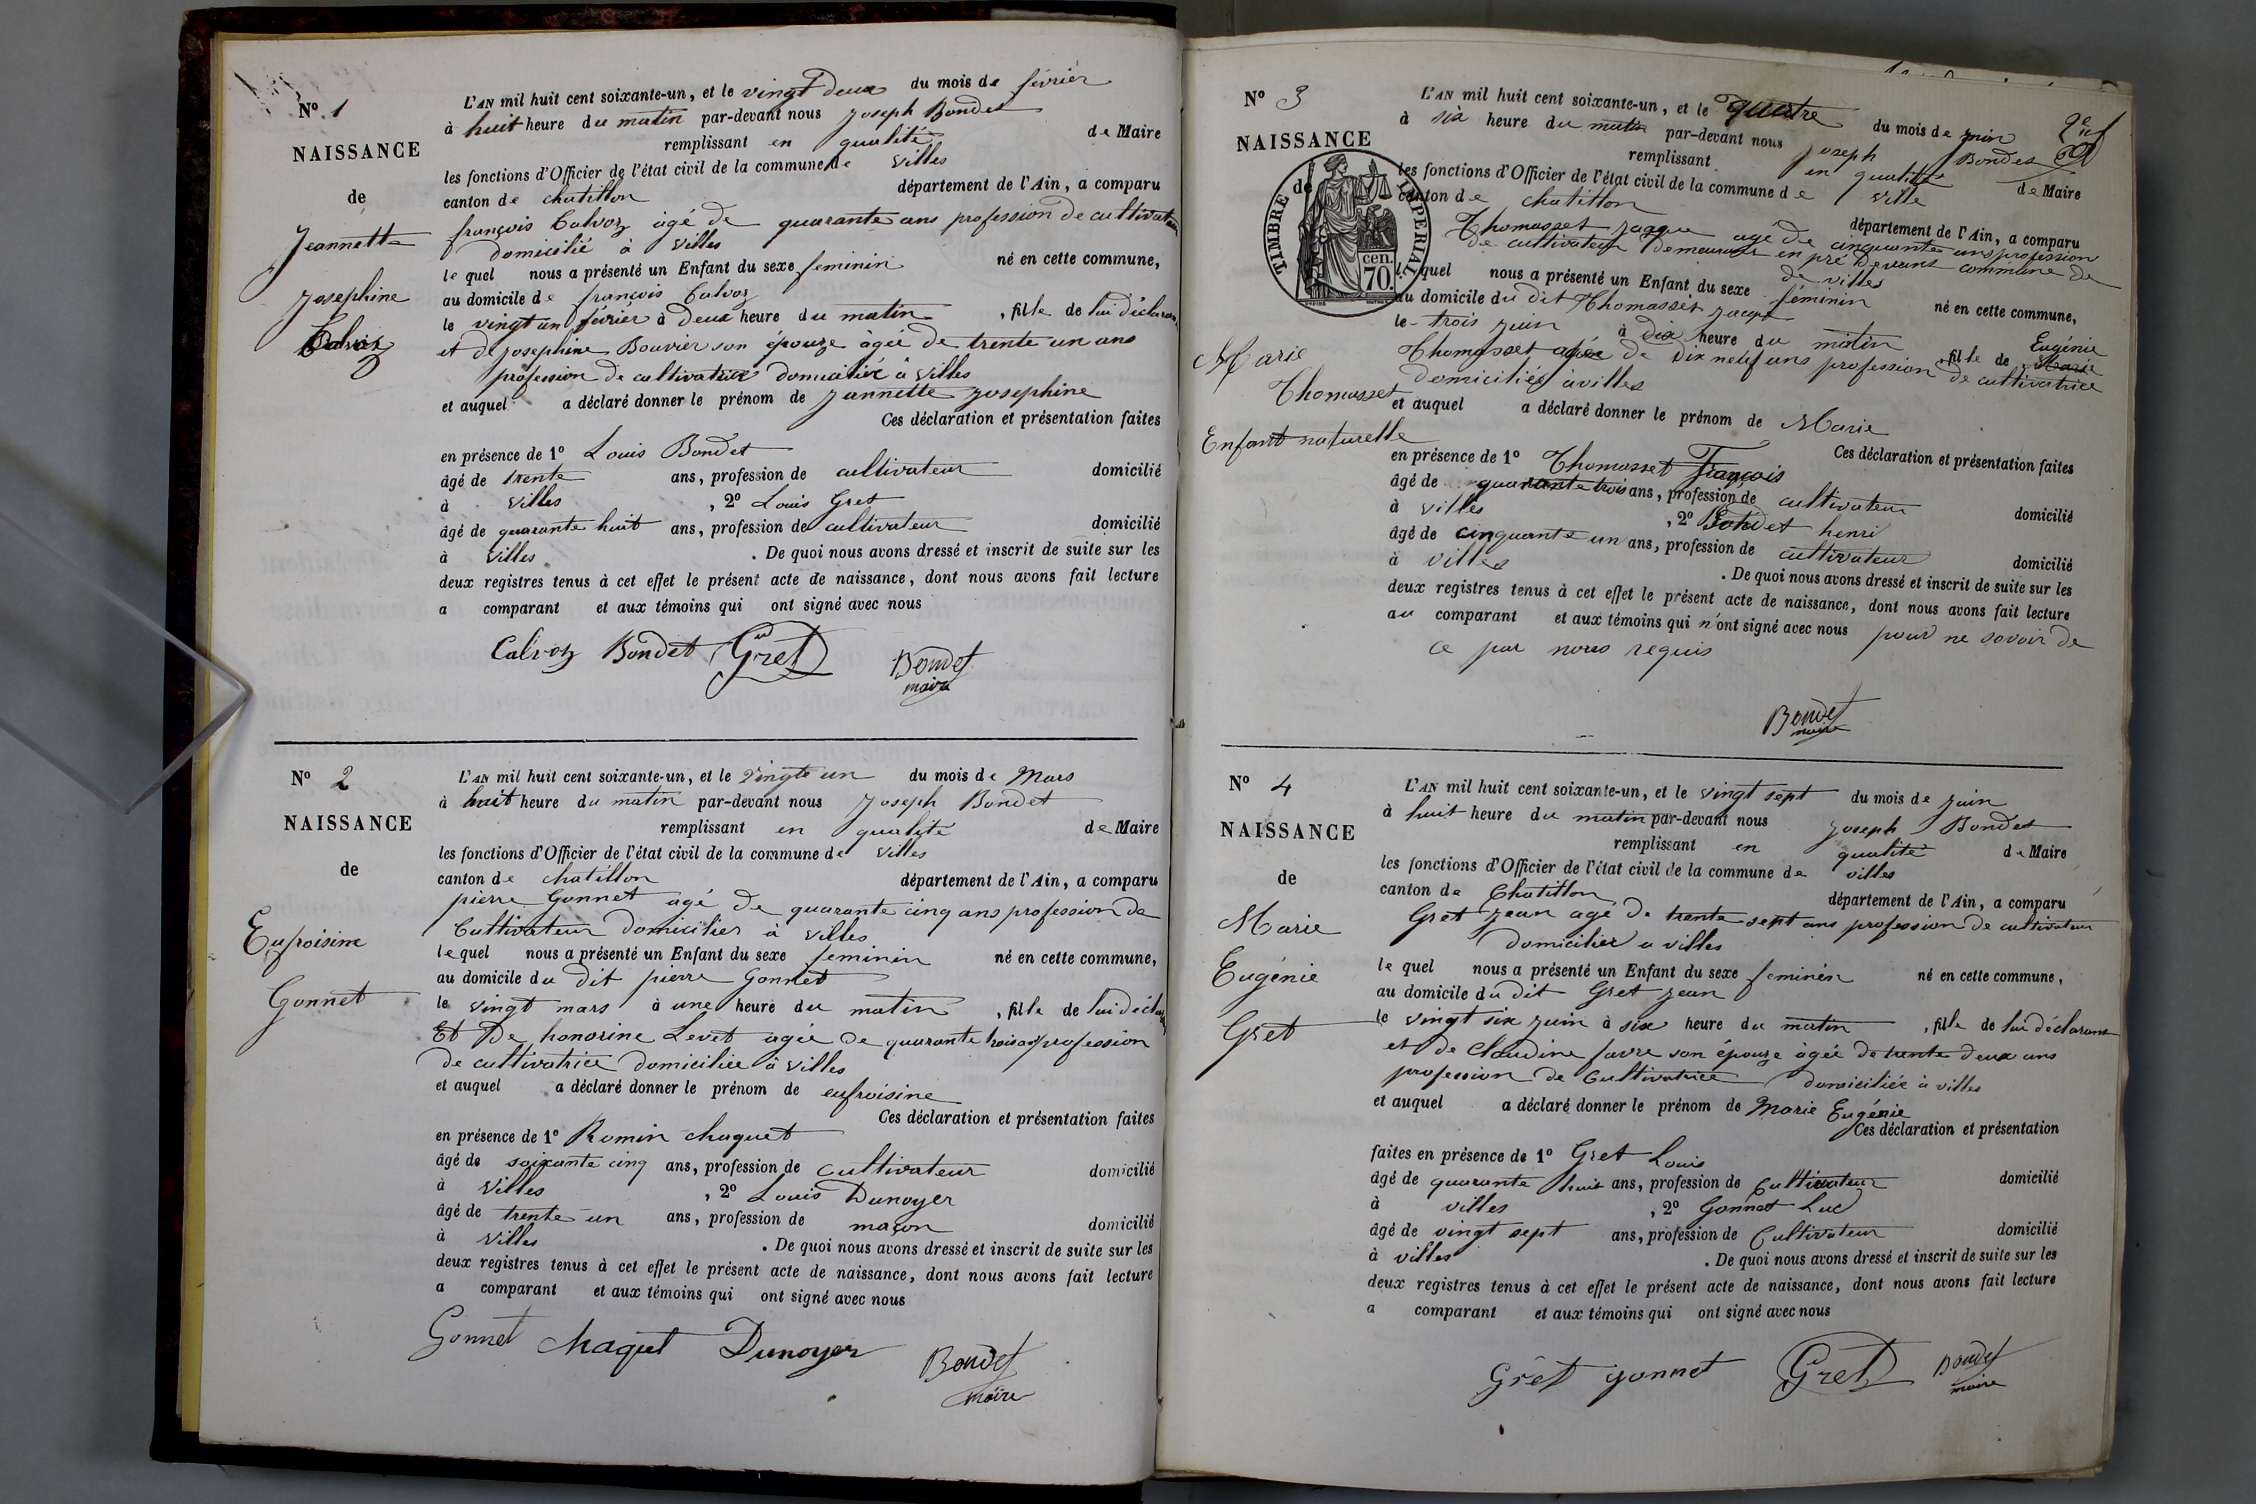 N° 1
NAISSANCE
de
Jeannette
Josephine
Calvoz
L'AN mil huit cent soixante-un, et le vingt deux du mois de février
à huit heure du matin par-devant nous Joseph Bondet
remplissant en qualité de Maire
les fonctions d'Officier de l'état civil de la commune de Villes
canton de chatillon département de l'Ain, a comparu
françois Calvoz agé de quarante ans profession de cultivateur
domicilié à Villes
le quel nous a présenté un Enfant du sexe feminin né en cette commune,
au domicile de françois Calvoz
le vingt un février à deux heure du matin , fille de lui déclarant
et de josephine Bouvier son épouze âgée de trente un ans
profession de cultivatrice domiciliée à Villes
et auquel a déclaré donner le prénom de Jannette Josephine
Ces déclaration et présentation faites
en présence de 1° Louis Bondet
âgé de trente ans, profession de cultivateur domicilié
à Villes , 2° Louis Gret
âgé de quarante huit ans, profession de cultivateur domicilié
à Villes . De quoi nous avons dressé et inscrit de suite sur les
deux registres tenus à cet effet le présent acte de naissance, dont nous avons fait lecture
a comparant et aux témoins qui ont signé avec nous
Calvoz Bondet Gret Bondet
maire
N° 2
NAISSANCE
de
Eufroisine
Gonnet
L'AN mil huit cent soixante-un, et le Vingte un du mois de Mars
à huit heure du matin par-devant nous Joseph Bondet
remplissant en qualité de Maire
les fonctions d'Officier de l'état civil de la commune de Villes
canton de chatillon département de l'Ain, a comparu
pierre Gonnet agé de quarante cinq ans profession de
Cultivateur domicilier à Villes
le quel nous a présenté un Enfant du sexe feminin né en cette commune,
au domicile du dit pierre Gonnet
le vingt mars à une heure du matin , fille de lui déclarant
Et De honorine Levet agée de quarante trois ans profession
de cultivatrice domiciliée à Villes
et auquel a déclaré donner le prénom de eufroisine
Ces déclaration et présentation faites
en présence de 1° Romin chaquet
âgé de soixante cinq ans, profession de cultivateur domicilié
à Villes , 2° Louis Dunoyer
âgé de trente un ans, profession de maçon domicilié
à Villes . De quoi nous avons dressé et inscrit de suite sur les
deux registres tenus à cet effet le présent acte de naissance, dont nous avons fait lecture
a comparant et aux témoins qui ont signé avec nous
Gonnet chaquet Dunoyer Bondet
maire
N° 3
NAISSANCE
de
TIMBRE IMPERIAL
cen.
70.
Marie
Thomasset
Enfant naturelle
L'AN mil huit cent soixante-un, et le quatre du mois de juin
à six heure du matin par-devant nous Joseph Bondet
remplissant en qualité de Maire
les fonctions d'Officier de l'état civil de la commune de Ville
canton de chatillon département de l'Ain, a comparu
Thomasset jaque agé de cinquante ans profession
de cultivateur demeurant en pré Devant commune de
de villes
le quel nous a présenté un Enfant du sexe féminin né en cette commune,
au domicile du dit Thomasset jacque
le trois juin à dix heure du matin , fille de Eugénie
Thomasset agée de Dix neuf ans profession de cultivatrice
domiciliée à villes
et auquel a déclaré donner le prénom de Marie
Ces déclaration et présentation faites
en présence de 1° Thomasset François
âgé de quarante trois ans, profession de cultivateur domicilié
à villes , 2° Bondet henri
âgé de cinquante un ans, profession de cultivateur domicilié
à villes . De quoi nous avons dressé et inscrit de suite sur les
deux registres tenus à cet effet le présent acte de naissance, dont nous avons fait lecture
au comparant et aux témoins qui n'ont signé avec nous pour ne savoir de
ce par nous requis
Bondet
maire
N° 4
NAISSANCE
de
Marie
Eugénie
Gret
L'AN mil huit cent soixante-un, et le vingt sept du mois de juin
à huit heure du matin par-devant nous Joseph Bondet
remplissant en qualité de Maire
les fonctions d'Officier de l'état civil de la commune de villes
canton de Chatillon département de l'Ain, a comparu
Gret jean agé de trente sept ans profession de cultivateur
domicilier a villes
le quel nous a présenté un Enfant du sexe feminin né en cette commune,
au domicile du dit Gret jean
le vingt six juin à six heure du matin , fille de lui déclarant
et de Claudine favre son épouze âgée de trente deux ans
profession de Cultivatrice domiciliée à villes
et auquel a déclaré donner le prénom de Marie Eugénie
Ces déclaration et présentation
faites en présence de 1° Gret Louis
âgé de quarante huit ans, profession de Cultivateur domicilié
à villes , 2° Gonnet Luc
âgé de vingt sept ans, profession de Cultivateur domicilié
à villes . De quoi nous avons dressé et inscrit de suite sur les
deux registres tenus à cet effet le présent acte de naissance, dont nous avons fait lecture
a comparant et aux témoins qui ont signé avec nous
Grêt gonnet Gret Bondet
maire